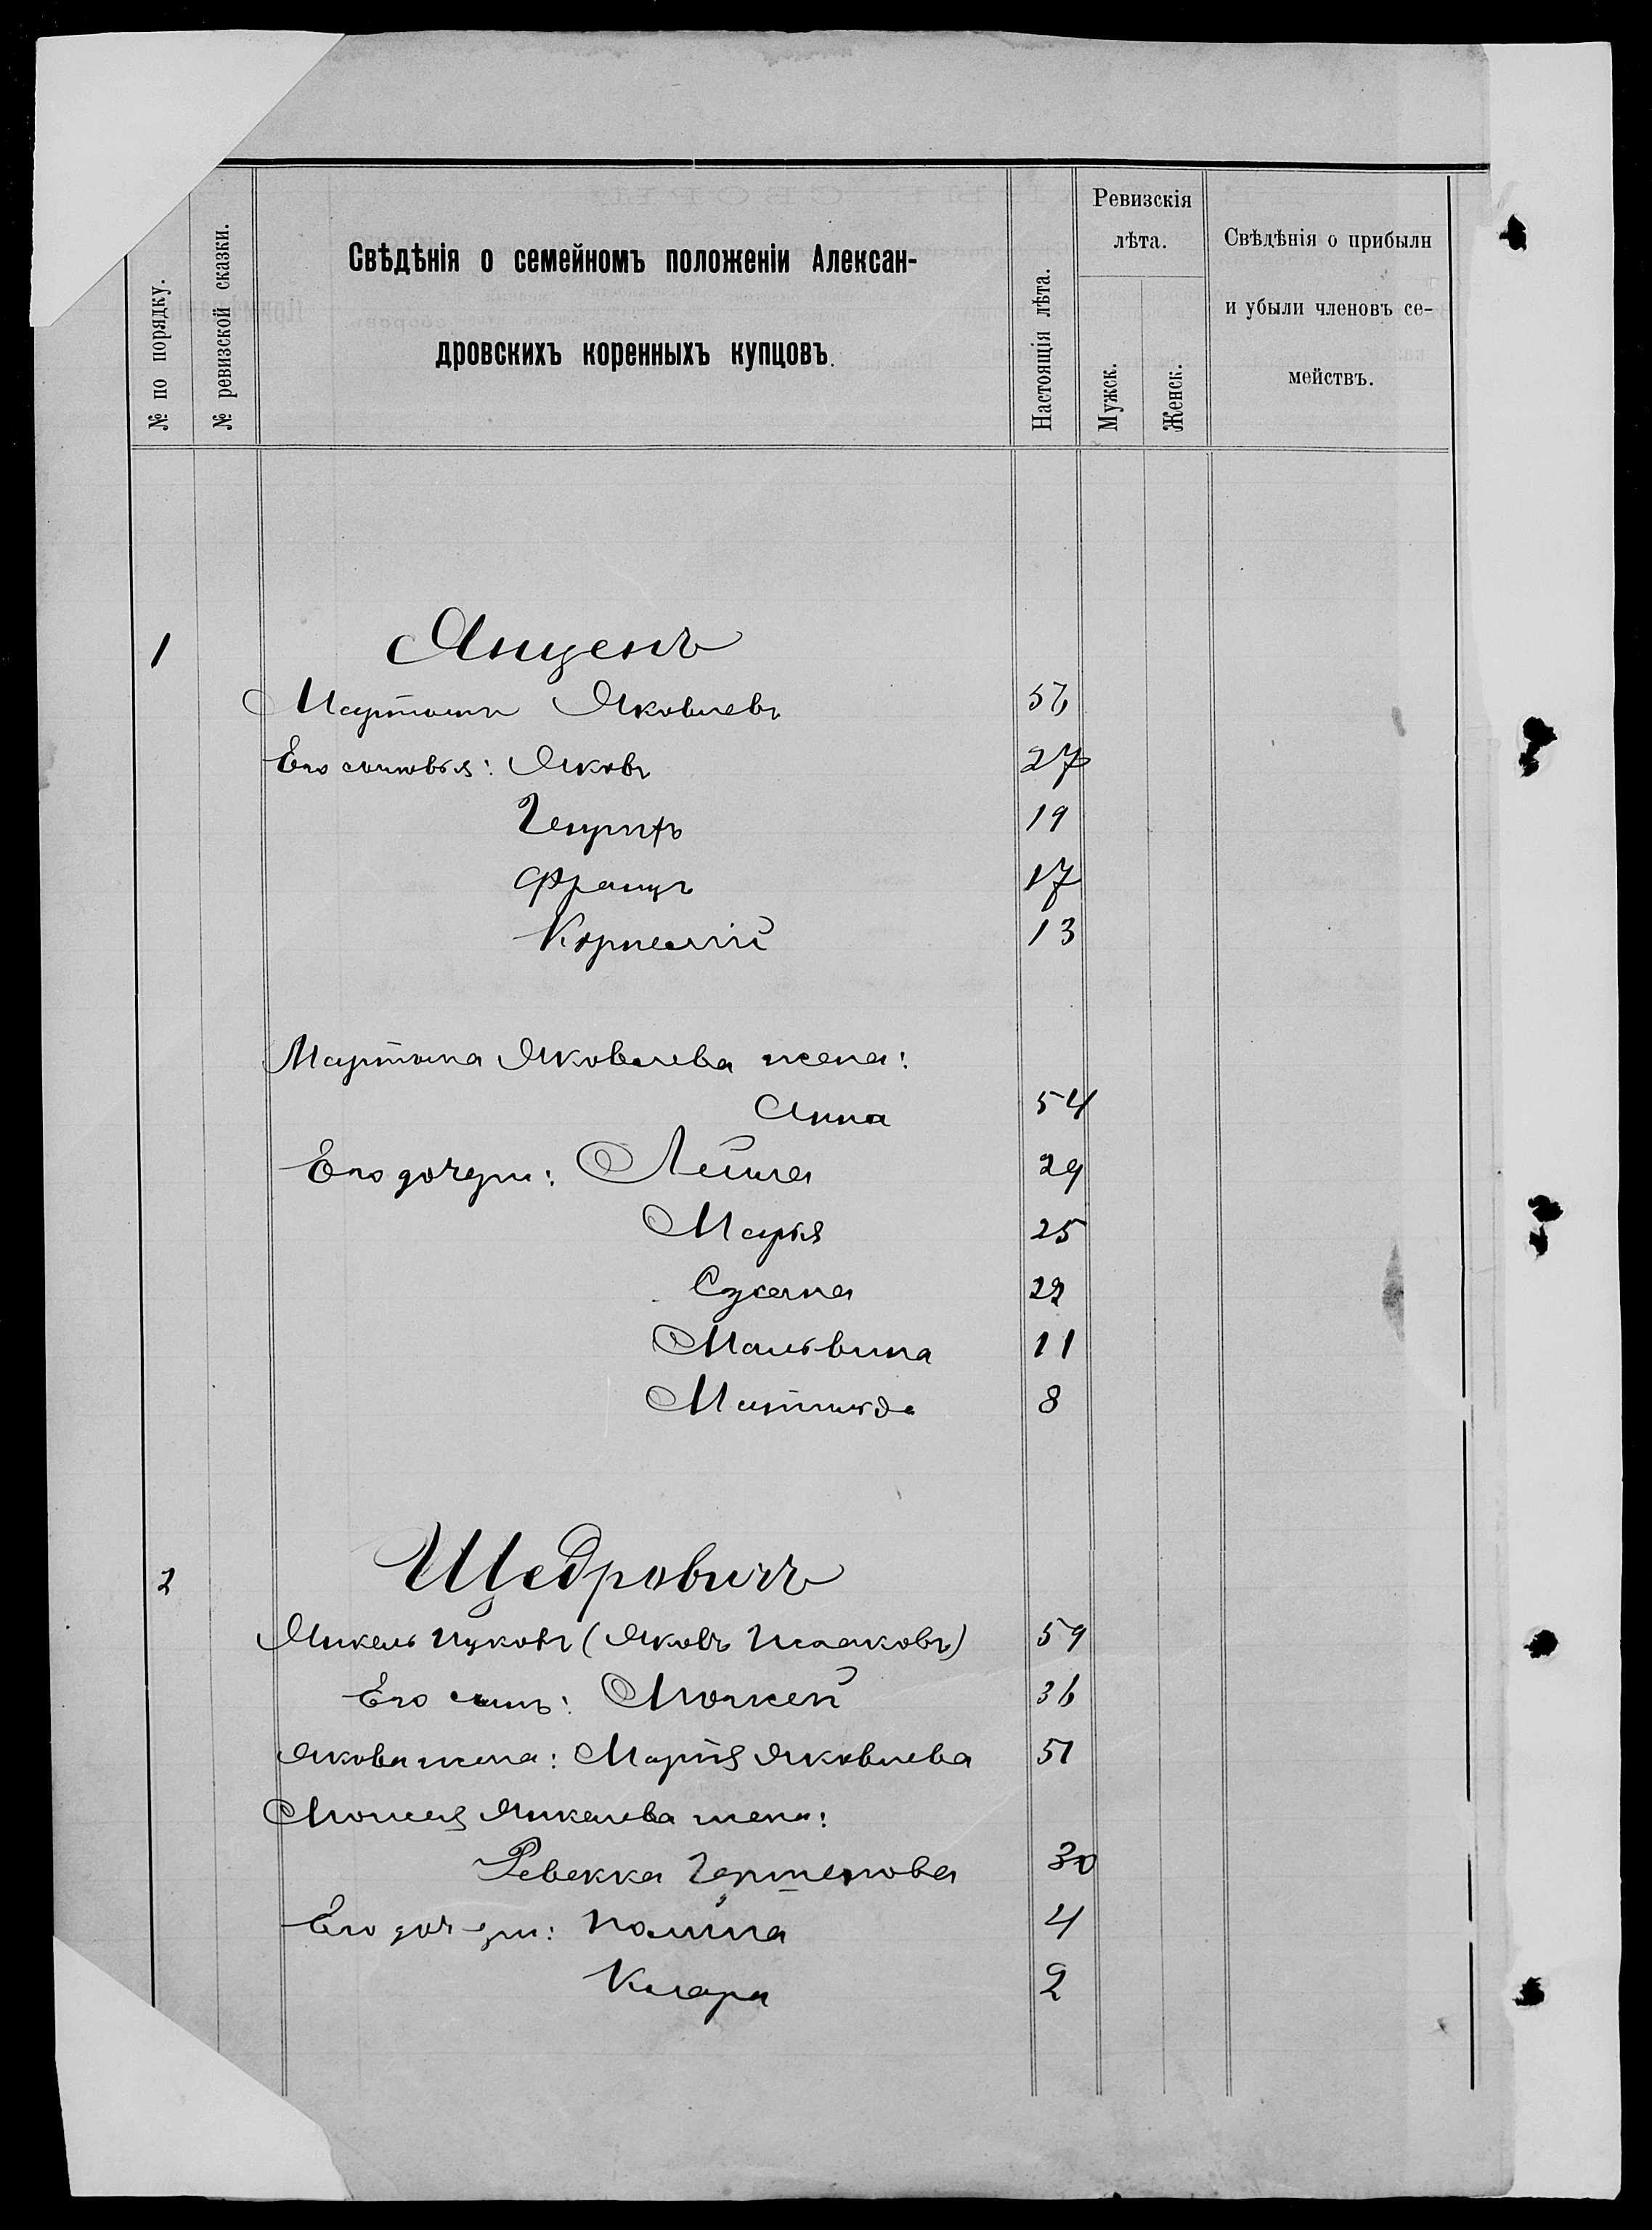 № по порядку.
№ ревизской сказки.
Свѣдѣнія о семейномъ положеніи Алексан-
дровскихъ коренныхъ купцовъ.
Настоящія лѣта.
Ревизскія
лѣта.
Мужск.
Женск.
Свѣдѣнія о прибыли
и убыли членовъ се-
мействъ.
1 Янценъ
Мартынъ Яковлевъ 56
Его сыновья: Яковъ 27
Генрихъ 19
Францъ 17
Корнелій 13
Мартына Яковлева жена:
Анна 54
Его дочери: 29
Марья 25
Сузана 22
Мальвина 11
Матильда 8
2 Щедровичъ
Янкель Ицковъ (Яковъ Исааковъ) 59
Его сынъ: Моисей 36
Якова жена: Марія Яковлева 51
Моисея Янкелева жена:
Ревекка 30
Его дочери: Полина 4
Клара 2